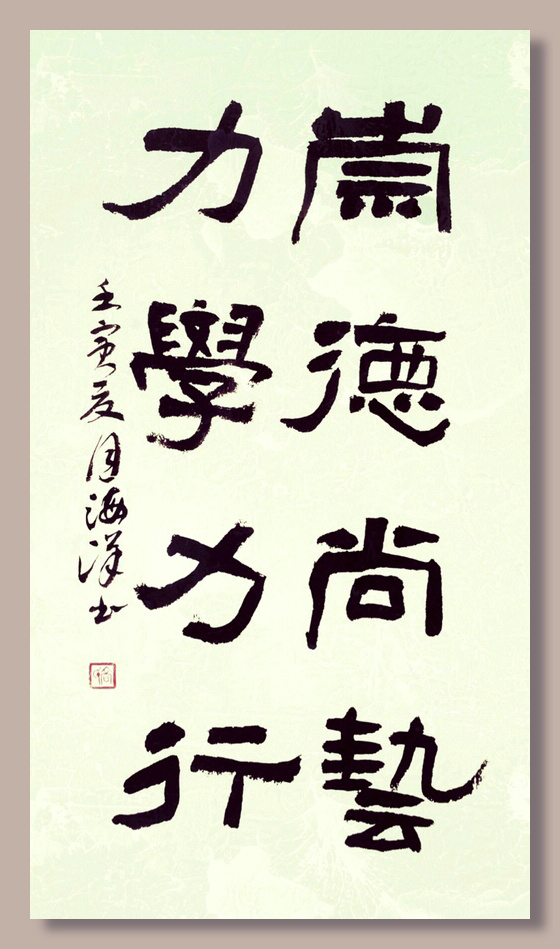 崇德尚藝
力學力行
壬寅夏月海洋书